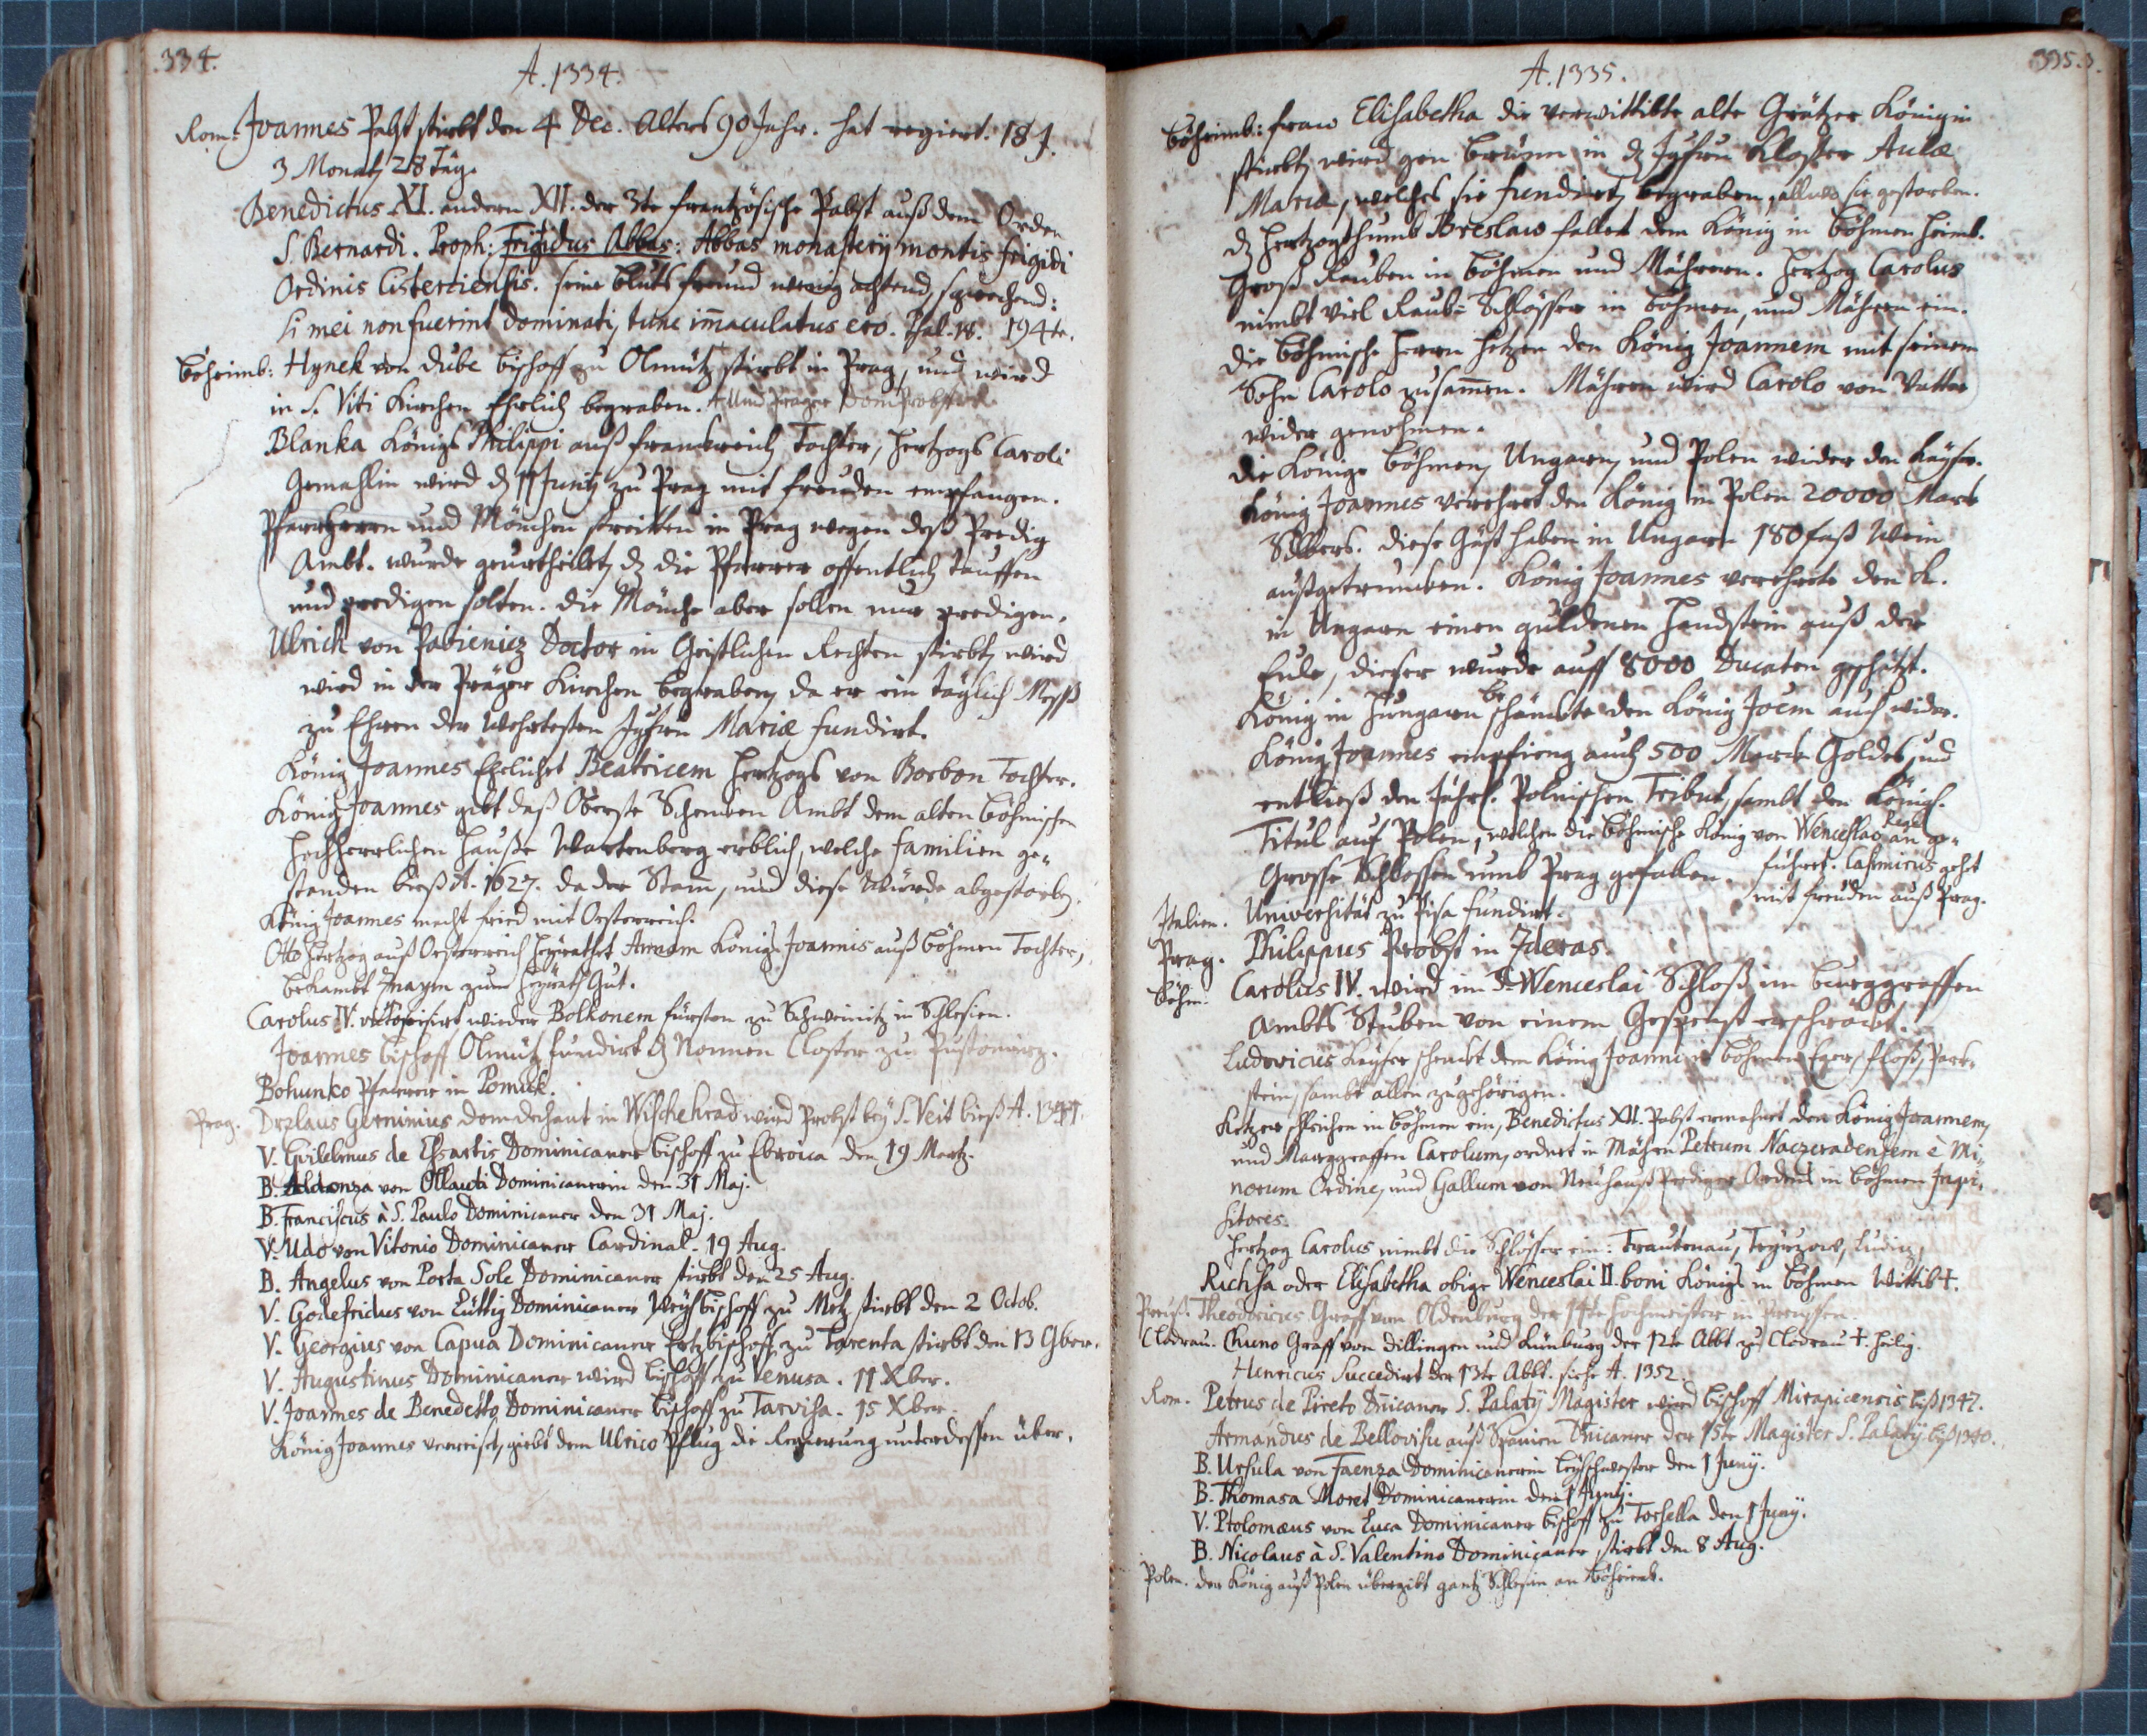 334.
A. 1334.
Rom. Joannes Pabst stirbt den 4 Dec. Alters 90 Jahr. hat regiert. 18 J.
3 Monath 28 Täg.
Benedictus XI. andern XII. der 3te frantzösische Pabst auß dem Orden
S. Bernardi. Proph: Frigidus Abbas: Abbas monasterij montis frigidi
Ordinis Cisterciensis. seine blutsfreund wenig achtend, sprechend:
si mei non fuerint dominati, tunc im̄aculatus ero. Psal. 18. 194te.
Böheimb: Hynek von Dube bischoff zu Olmütz stirbt in Prag, und wird
in S. Viti Kirchen Ehrlich begraben. Und Prager Domprobst
Blanka Königs Philippi auß franckreich Tochter, Hertzogs Caroli
Gemahlin wird dz 11 Junij zu Prag mit freuden empfangen.
Pfarrherrn und Mönchen streitten in Prag wegen deß Predig
Ambt. wurde geurtheilet, dz die Pfarrer offentlich tauffen
und predigen solten. die Mönche aber sollen nur predigen.
Ulrich von Pabienicz Doctor in Geistlichen Rechten stirbt, wird
wird in der Präger Kirchen begraben, da er ein täglich Mess
zu Ehren der Wehrtesten Jgfrn Mariæ fundirt.
König Joannes Ehelichet Beatricem Hertzogs von Borbon Tochter.
König Joannes gibt daß Oberste Schencken Ambt dem alten böhmischen
Hochherrlichen Hauße Wartenberg erblich, welche familien ge-
standen bieß A. 1627. da der Stam̄, und diese Würde abgestorben.
König Joannes macht fried mit Oesterreich.
Otto Hertzog auß Oesterreich heyrathet Annam Königs Joannis auß böhmen Tochter,
bekambt Znaym zum heyrath Gut.
Carolus IV. victorisirt wieder Bolkonem fürsten zu Schweinitz in Schlesien.
Joannes bischoff Olmütz fundirt dz Nonnen Closter zu Pustomierz.
Bohunko Pfarrer in Pomuk.
Prag. Drzlaus Gerninius Domdechant in Wischehrad wird Probst bey S. Veit bieß A. 1341.
V. Gvilelmus de Essartis Dominicaner bischoff zu Ebroica den 19 Mertz.
B. Aldonza von Ollauti Dominicanerin den 31 Maj.
B. Franciscus à S. Paulo Dominicaner den 31 Maj.
V. Udo von Vitonio Dominicaner Cardinal. 19 Aug.
B. Angelus von Porta Sole Dominicaner stirbt den 25 Aug.
V. Godefridus von Lüttig Dominicaner Weyhbischoff zu Metz stirbt den 2 Octob.
V. Georgius von Capua Dominicaner Ertzbischoff zu Tarenta stirbt den 13 9ber.
V. Augustinus Dominicaner wird bischoff zu Venusa. 11 Xber.
V. Joannes de Benedetto Dominicaner bischoff zu Tarvisa. 15 Xber.
König Joannes verreiset, giebt dem Ulrico Pflug die Regierung unterdessen über.
335.
A. 1335.
Böheimb: fraw Elisabetha die verwittibte alte Grätzer Königin
stirbt, wird gen Brünn in dz Jgfrn Kloster Aulæ
Mariæ, welches sie fundirt, begraben, allwo sie gestorben.
dz Hertzogthumb Breslaw fallet dem König in böhmen heimb.
Groß Rauben in böhmen und Mähren. Hertzog Carolus
nimbt viel Raub-Schlösser in böhmen, und Mähren ein.
die böhmische Herrn hetzen den König Joannem mit seinem
Sohn Carolo zusam̄en. Mähren wird Carolo von Vatter
wider genohmen.
die Könige Böhmen, Ungarn, und Polen wider den Kayser.
König Joannes verehret den König in Polen 20000 Marck
Silbers. diese Gäst haben in Ungarn 180 faß Wein
außgetruncken. König Joannes verehrte den K.
in Ungarn einen guldenen Handstein auß der
Eule, dieser wurde auff 8000 Ducaten geschätzt.
König in Hungarn beschänckte den König Joem auch wider.
König Joannes empfieng auch 500 Marck Goldes, und
entließ den Jährl. Polnischen Tribut, sambt den Königl.
Titul auf Polen, welchen die böhmische König von Wenceslao Rege an ge-
führet. Casimirus geht
mit freuden auß Prag.
Grosse Schlossen umb Prag gefallen.
Italien. Universität zu Pisa fundirt.
Prag. Philippus Probst in Zderas.
Böhm. Carolus IV. wird im S. Wenceslai Schloß im burggraffen
Ambts Stuben von einem Gespenst erschröckt.
Ludovicus Kayser schenckt dem König Joanni in böhmen Eger, floß, Park-
stein, sambt allen zugehörigen.
Ketzer schleichen in böhmen ein, Benedictus XII. Pabst ermahnet den König Joannem,
und Marggraffen Carolum, ordnet in Mähren Petrum Naczeradensem è Mi-
norum Ordine, und Gallum von Neuhauß Prediger Ordens in böhmen Inqui-
sitores.
Hertzog Carolus nimbt die Schlösser ein: Trautenau, Teyrzow, Ludiz,
Richsa oder Elisabetha obige Wenceslai II. boni Königs in böhmen Wittib †.
Preuß. Theodoricus Graff von Oldenburg der 14te Hochmeister in Preussen.
Cladrau. Chuno Graff von Dillingen und Künburg der 12te Abbt zu Cladrau †. heilig.
Henricus Succedirt der 13te Abbt. siehe A. 1352.
Rom. Petrus de Pireto Dn̄icaner S. Palatij Magister wird bischoff Mirapicensis biß 1347.
Armandus de Bellovisu auß Spanien Dn̄icaner der 15te Magister S. Palatij biß 1340.
B. Ursula von Faenza Dominicanerin Leyschwester den 1 Junij.
B. Thomasa Moret Dominicanerin den 1 Junij.
V. Ptolomæus von Luca Dominicaner bischoff zu Torsella den 1 Junij.
B. Nicolaus à S. Valentino Dominicaner stirbt den 8 Aug.
Polen. der König auß Polen übergibt gantz Schlesien an Böheimb.